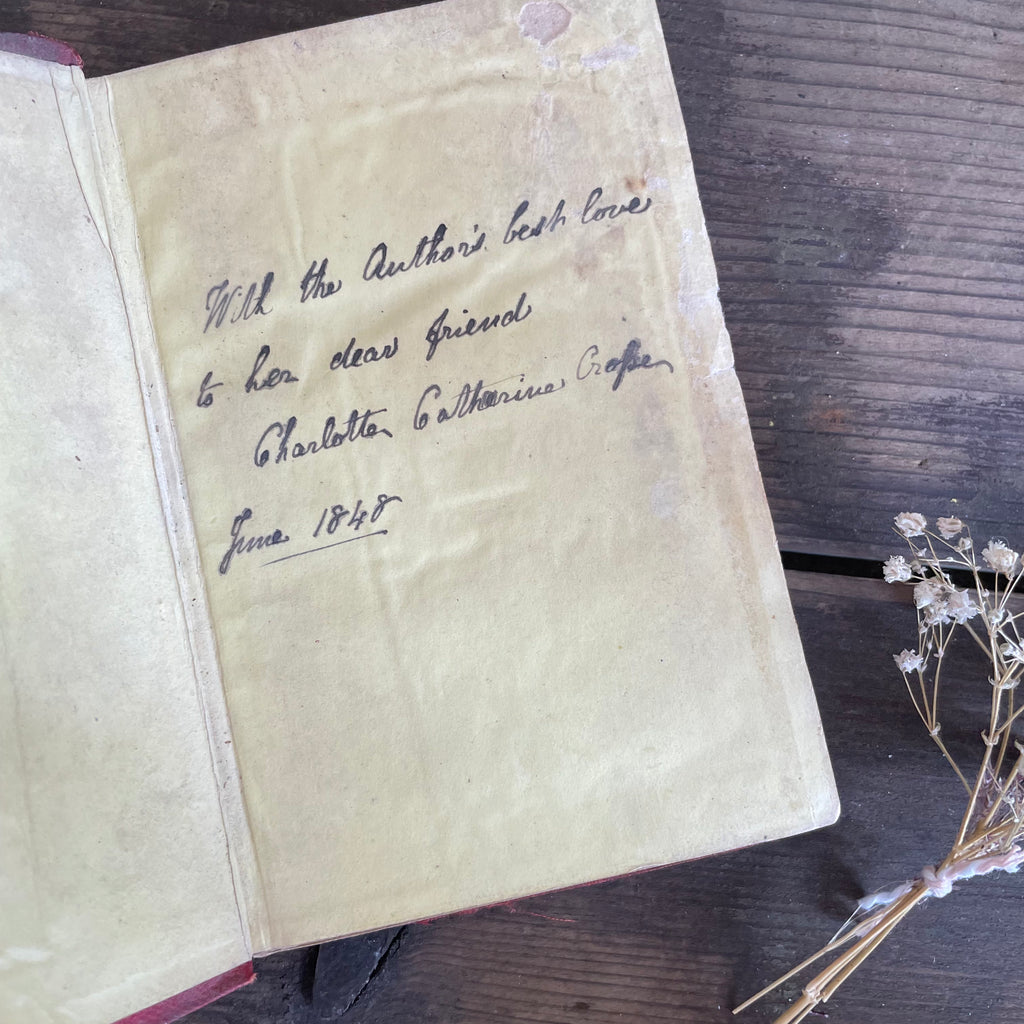 With the Author's best love
to her dear friend
Charlotte Catharine
June 1848